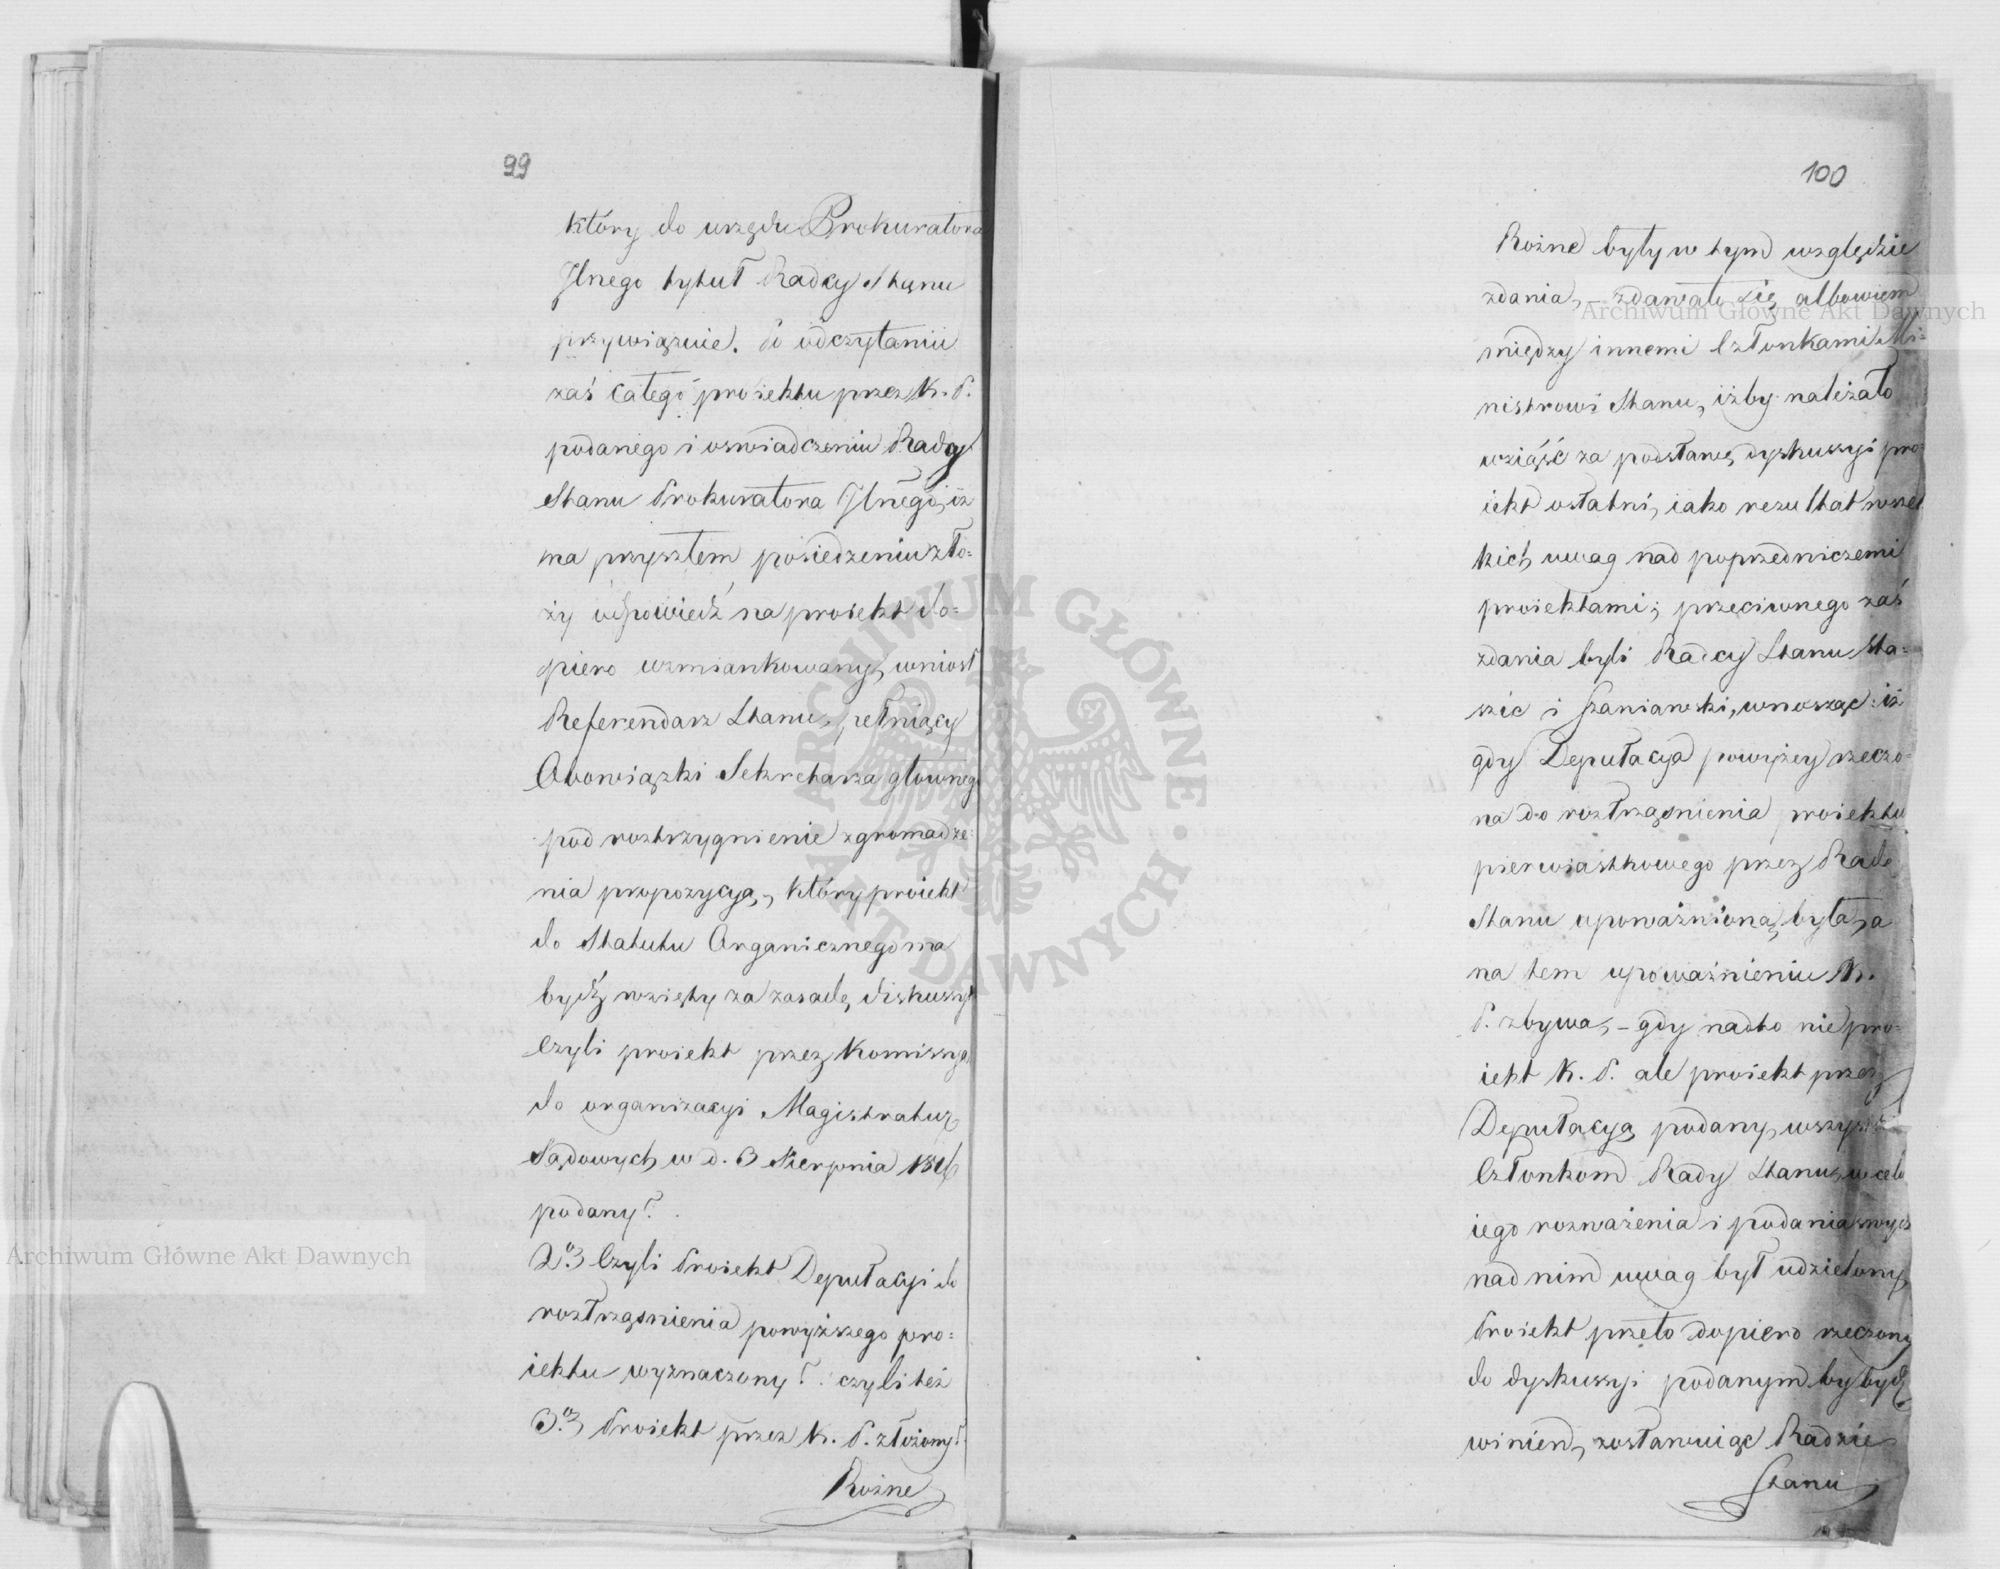 99
który do urzędu Prokuratora
Jlnego tytuł Radcy Stanu
przywiązuie. Po odczytaniu
zaś całego proiektu przez K. P.
podanego i oswiadczeniu Radcy
Stanu Prokuratora Jlnego, iż
na przyszłem posiedzeniu zło=
ży odpowiedź na proiekt do=
piero wzmiankowany, wniosł
Referendarz Stanu, pełniący
Obowiązki Sekretarza głownego
pod roztrzygnienie zgromadze=
nia propozycyą, który proiekt
do Statutu Organicznego ma
bydź wzięty za zasadę diskussyi
czyli proiekt przez Kommissyą
do organizacyi Magistratur
Sądowych w d. 3 Sierpnia 1816
podany?
2o3 Czyli Proiekt Deputacyi do
roztrząsnienia powyższego pro=
iektu wyznaczony? czyli też
3o3 Proiekt przez K. P. złożony?
Rożne
100
Rożne były w tym względzie
zdania, – zdawało się albowiem
między innemi Członkami Mi=
nistrowi Stanu, iżby należało
wziąść za podstawę dyskussyi pro=
iekt ostatni, iako rezultat wszel
kich uwag nad poprzedniczemi
proiektami; przeciwnego zaś
zdania byli Radcy Stanu Sta=
szic i Szaniawski, wnosząc: iż
gdy Deputacya powyżey rzeczo=
na do roztrząsnienia proiektu
pierwiastkowego przez Radę
Stanu upoważnioną była, a
na tem upoważnieniu K.
P. zbywa, – gdy nadto nie pro=
iekt K. P. ale proiekt przez
Deputacyą podany, wszystkim
Członkom Rady Stanu, w celu
iego rozważenia i podania swych
nad nim uwag był udzielony,
Proiekt przeto dopiero rzeczony
do dyskussyi podanym by bydź
winien, zostawuiąc Radzie
Stanu
Archiwum Główne Akt Dawnych
Archiwum Główne Akt Dawnych
ARCHIWUM GŁÓWNE AKT DAWNYCH